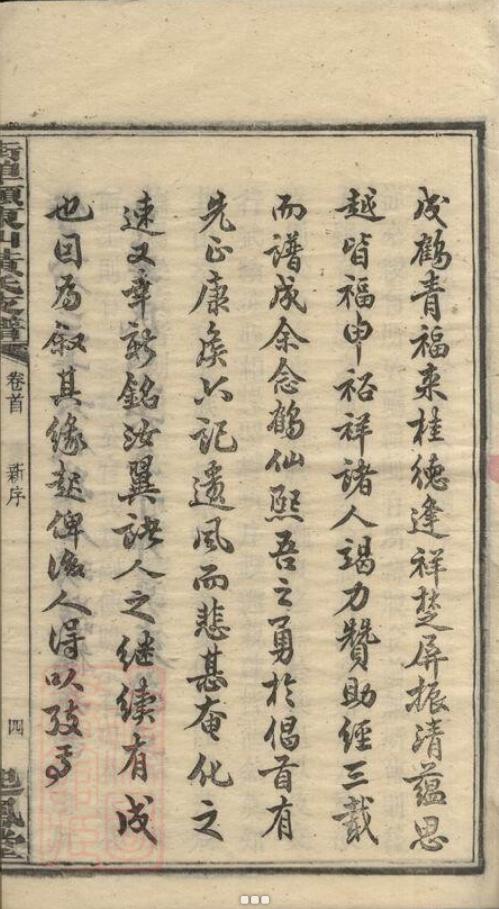 成鶴青福来桂德逢祥楚屏振清蘊思
越皆福申裕祥諸人竭力贊助經三載
而譜成余念鶴仙熙吾之勇於倡首有
先正康侯公記遺風而悲甚奄化之
速又幸新銘汝翼諸人之継續有成
也因為叙其緣起俾後人得以攷焉
東山黃氏支譜
卷首
新序
四